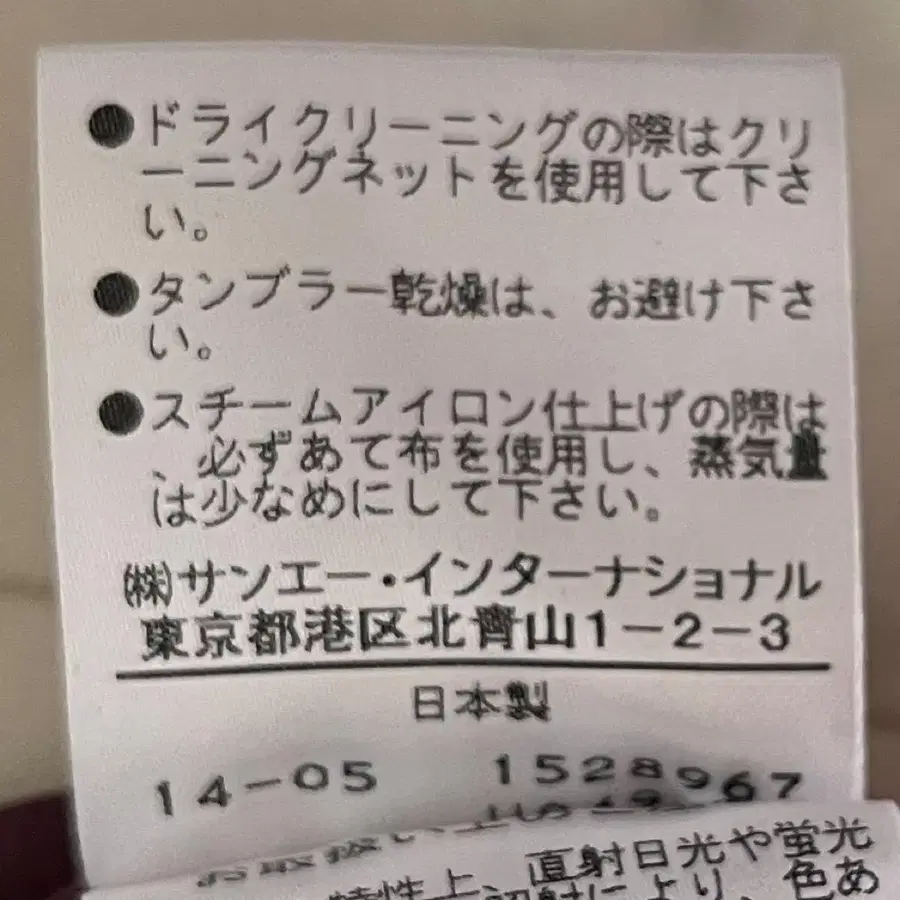 ●ドライクリーニングの際はクリ
ーニングネットを使用して下さ
い。
●タンブラー乾燥は、お避け下さ
い。
●スチームアイロン仕上げの際は
、必ずあて布を使用し、蒸気量
は少なめにして下さい。
㈱サンエー・インターナショナル
東京都港区北青山1-2-3
日本製
14-05 1528967
お取扱い上
直射日光や蛍光
特性上、
により、色あ